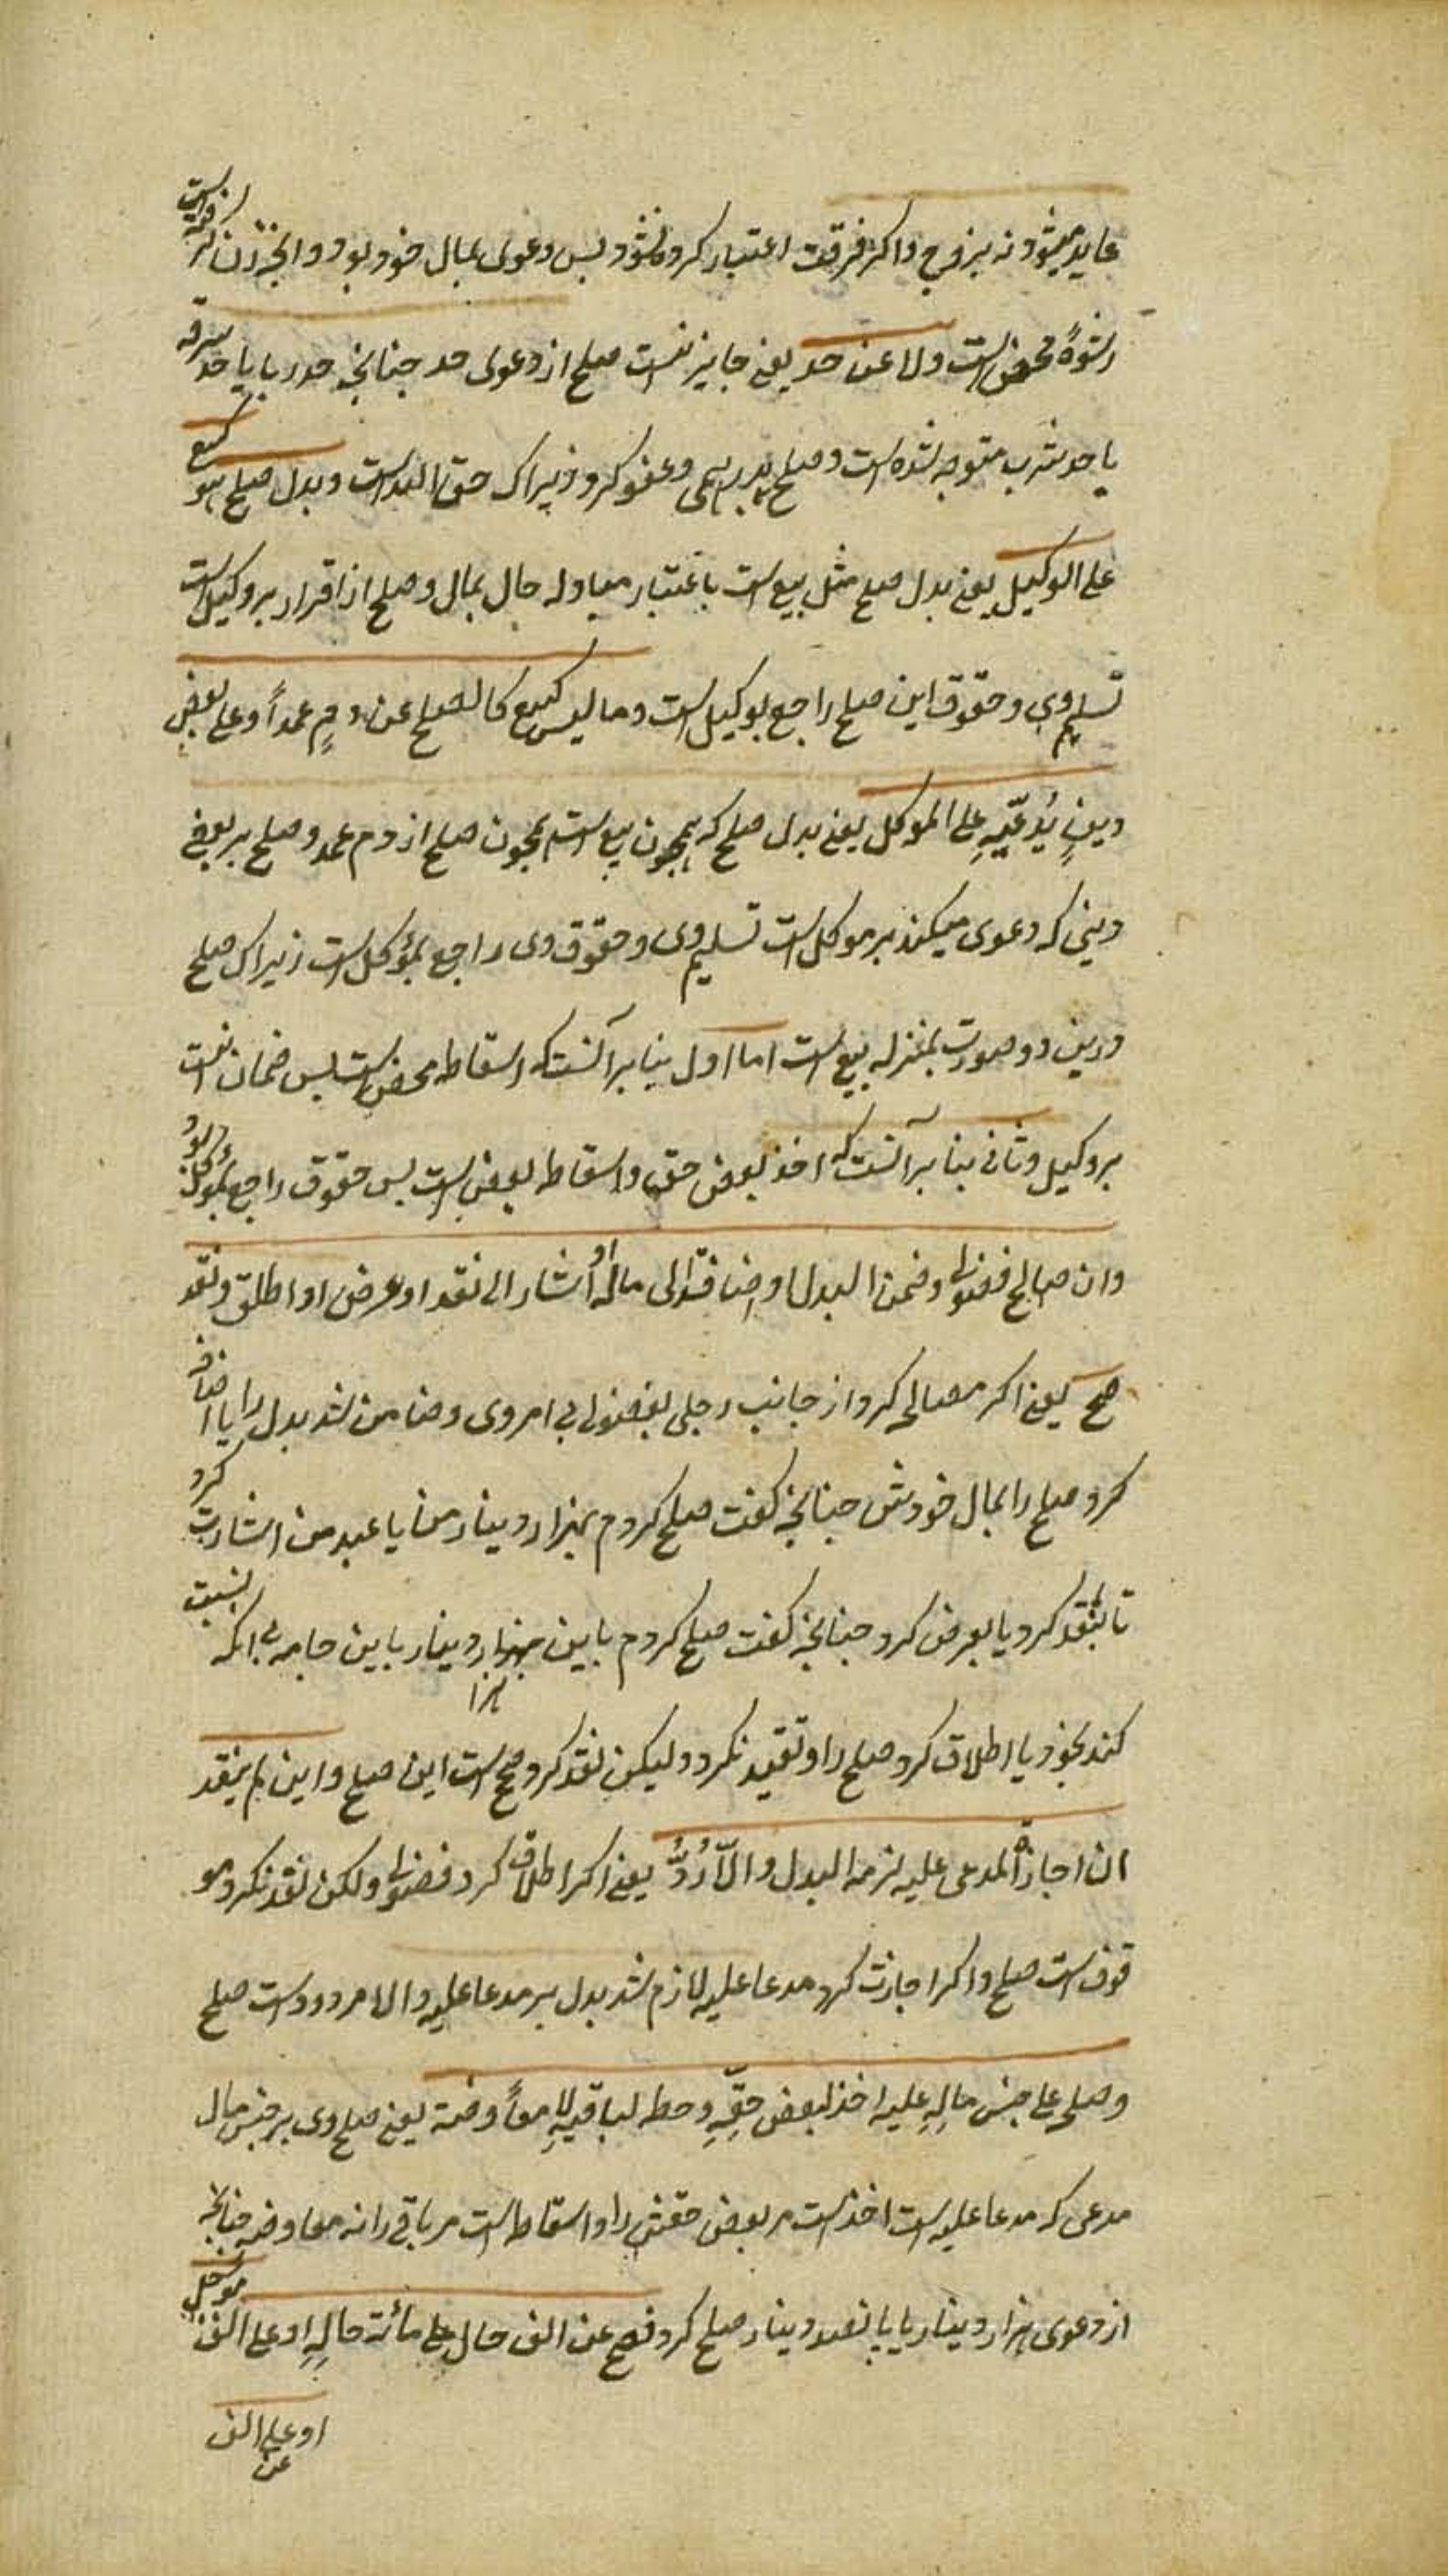 عاید میشود نه بزوج و اکر فرقت اعتبار کرده نشود پس دعوی بمال خود بود و انچه زن کرفته است
رشوةً محض است ولا عن حد یعنی جایز نیست صلح از دعوی حد چنانچه حد ربا یا حد سرقه
یا حد شرب متوجه شده است و صلح وعفو کرد زیراک حق الله است وبدل صلح هو کبیع
علی الوکیل یعنی بدل صلح مثل بیع است باعتبار مبادله مال بمال وصلح از اقرار بر وکیل است
تسلیم وی وحقوق این صلح راجع بوکیل است وما لیس کبیع کالصلح عن دمٍ عمداً وعلی بعض
دینٍ یُدعّیهِ علی الموکل یعنی بدل صلح که همچون بیع است همچون صلح از دم عمد وصلح بر بعض
دینی که دعوی میکند بر موکل است تسلیم وی وحقوق وی راجع بموکل است زیراک صلح
درین دو صورت بمنزله بیع است اما اول بنا بر آنست که اسقاط محض است پس ضمان نیست
بر وکیل وثانی بنا بر آنست که اخذ بعض حق واسقاط بعض است پس حقوق راجع بموکل بود
وان صالح فضولی وضمن البدل او اضاف الی ماله او اشار الی نقد او عرض او اطلق ونقد
صح یعنی اکر مصالحه کرد از جانب رجلی فضولی بی امر وی وضامن شد بدل را یا اضافه
کرد صلح را بمال خودش چنانچه کفت صلح کردم بهزار دینار من یا عبد من یا اشارت کرد
تا بنقد کرد یا بعرض کرد چنانچه کفت صلح کردم باین هزار دینار یا باین جامه بی انکه نسبت
کند بخود یا اطلاق کرد صلح را وتقیید نکرد ولیکن نقد کرد صح است این صلح وان لم ینقد
ان اجازه المدعی علیه لزمه البدل والّا رُدَّ یعنی اکر اطلاق کرد فضولی ولکن نقد نکرد مو
قوف است صلح و اکر اجازت کرد مدعا علیه لازم شد بدل بر مدعا علیه والا مردود است صلح
وصلحه علی جنس مالِهِ علیه اخذ لبعض حقِّهِ وحط لباقیهِ لا معاوضة یعنی صلح وی بر جنس مال
مدعی که مدعا علیه است اخذ است مر بعض حقش را واسقاط است مر باقی را نه معاوضه چنانچه
از دعوی هزار دینار یا پانصد دینار صلح کرد فصح عن الف حال علی مائة حالهِ او علی الف موجل
او علی الف
عن